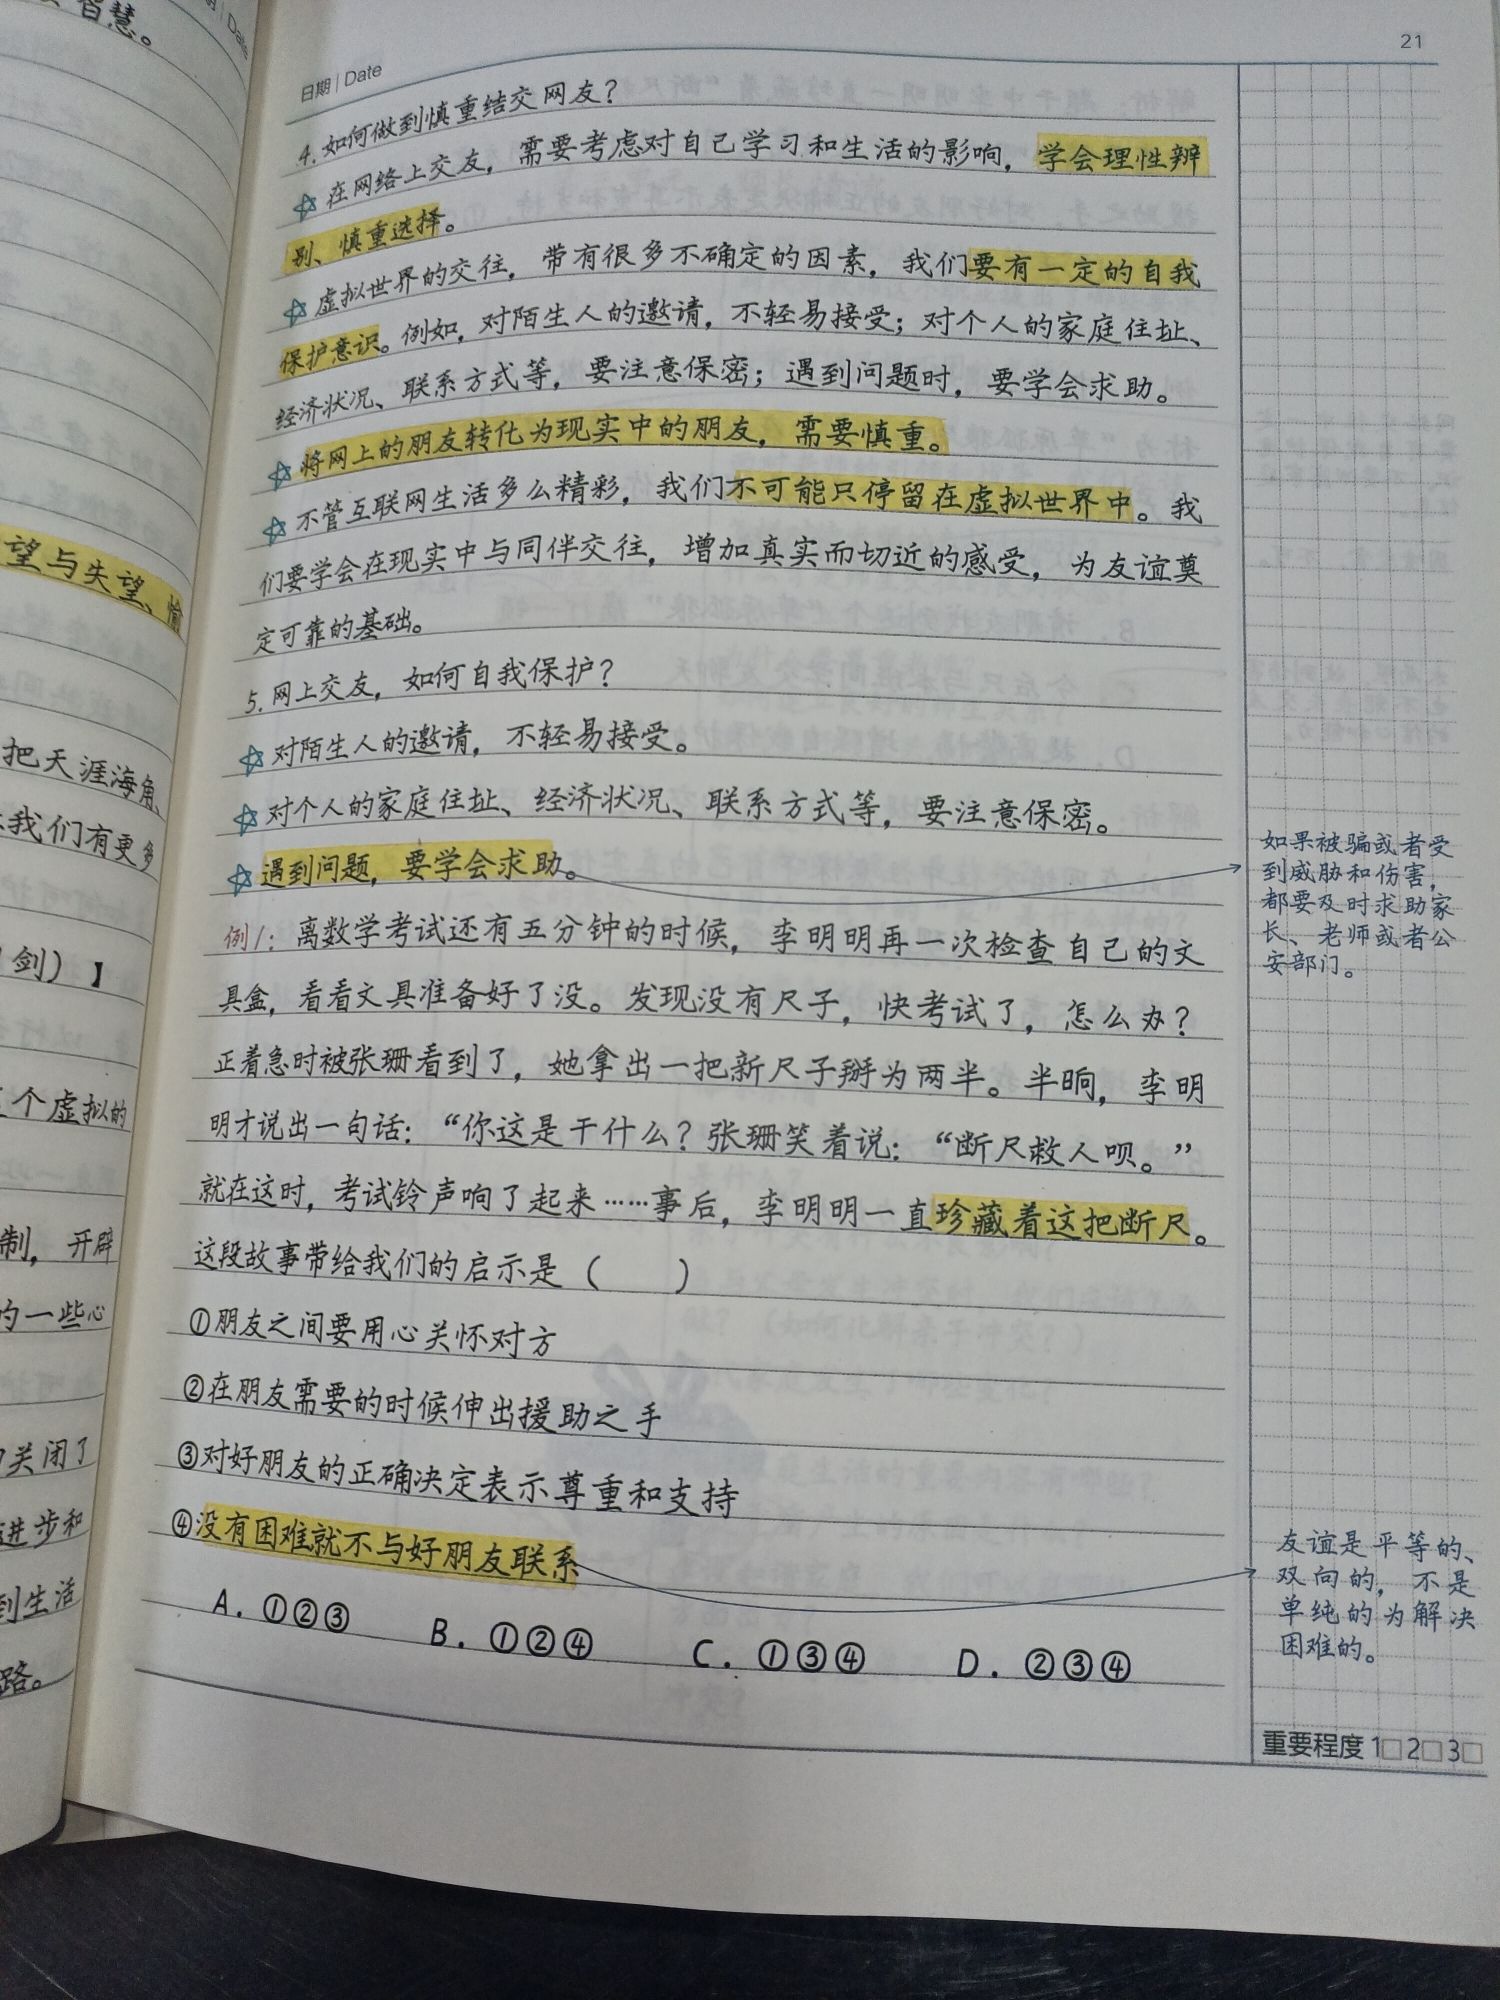 智慧。
Date
望与失望、愉
把天涯海角
我们有更多
剑）】
个虚拟的
制，开辟
的一些心
关闭了
进步和
到生活
路。
21
日期 | Date
4.如何做到慎重结交网友？
☆在网络上交友，需要考虑对自己学习和生活的影响，学会理性辨
别、慎重选择。
☆虚拟世界的交往，带有很多不确定的因素，我们要有一定的自我
保护意识。例如，对陌生人的邀请，不轻易接受；对个人的家庭住址、
经济状况、联系方式等，要注意保密；遇到问题时，要学会求助。
☆将网上的朋友转化为现实中的朋友，需要慎重。
☆不管互联网生活多么精彩，我们不可能只停留在虚拟世界中。我
们要学会在现实中与同伴交往，增加真实而切近的感受，为友谊奠
定可靠的基础。
5.网上交友，如何自我保护？
☆对陌生人的邀请，不轻易接受。
☆对个人的家庭住址、经济状况、联系方式等，要注意保密。
☆遇到问题，要学会求助。
如果被骗或者受
到威胁和伤害，
都要及时求助家
长、老师或者公
安部门。
例1：离数学考试还有五分钟的时候，李明明再一次检查自己的文
具盒，看看文具准备好了没。发现没有尺子，快考试了，怎么办？
正着急时被张珊看到了，她拿出一把新尺子掰为两半。半晌，李明
明才说出一句话：“你这是干什么？张珊笑着说：“断尺救人呗。”
就在这时，考试铃声响了起来……事后，李明明一直珍藏着这把断尺。
这段故事带给我们的启示是（　　）
①朋友之间要用心关怀对方
②在朋友需要的时候伸出援助之手
③对好朋友的正确决定表示尊重和支持
④没有困难就不与好朋友联系
友谊是平等的、
双向的，不是
单纯的为解决
困难的。
A.①②③ B.①②④ C.①③④ D.②③④
重要程度 1□ 2□ 3□